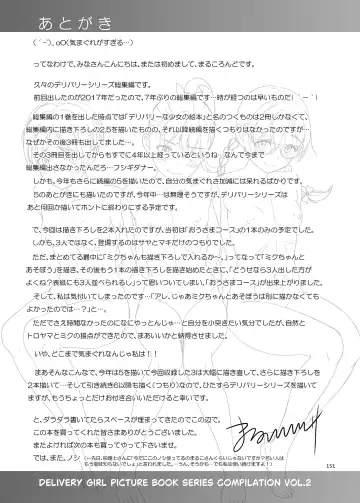 あとがき
(´-`)。oO(気まぐれがすぎる…)
ってなわけで、みなさんこんにちは、または初めまして、まるころんどです。
久々のデリバリーシリーズ総集編です。
前回出したのが2017年だったので、7年ぶりの総集編です…時が経つのは早いものだ(｀－´)
総集編の1巻を出した時点では「デリバリーな少女の絵本」と名のつくものは2冊しかなくて、
総集編内に描き下ろしの2.5を描いたものの、それ以降続編を描くつもりはなかったのですが…
なぜかその後3冊も出してました…。
その3冊目を出してからもすでに4年以上経っているというね…なんで今まで
総集編出さなかったんだろ…フシギダナー。
しかも、今年もさらに続編の5を描いたので、自分の気まぐれさ加減には呆れるばかりです。
5のあとがきにも描いたのですが、今年中…は無理そうですが、デリバリーシリーズは
あと何回か描いてホントに終わりにする予定です。
で、今回は描き下ろしを2本入れたのですが、当初は「おうさまコース」の1本のみの予定でした。
しかも、3人ではなく、登場するのはサヤとマキだけのつもりでした。
ただ、まとめてる最中に「ミクちゃんも描き下ろしで入れるか～、」ってなって「ミクちゃんと
あそぼう」を描き、その後もう1本の描き下ろしを描き始めたときに、「どうせなら3人出した方が
よくね？表紙にも3人並べられるし」って思いついてしまい、「おうさまコース」が出来上がりました。
そして、私は気付いてしまったのです…「アレ、じゃあミクちゃんとあそぼうは別に描かなくても
よかったのでは…？」と…。
ただでさえ時間なかったのになにやっとんじゃ…と自分を小突きたい気分でしたが、自然と
トロヤマとミクの初の絡みも描けたので、まあいいかと納得させました。
いや、どこまで気まぐれなんじゃ私は！！
まあそんなこんなで、今年は5を描いて今回収録した3は大幅に描き直して、さらに描き下ろしを
2本描いて…そして引き続き6以降も描く(つもり)なので、ひたすらデリバリーシリーズを描いて
ますが、もうちょっとだけお付き合いいただけると幸いです。
と、ダラダラ書いてたらスペースが埋まってきたのでこの辺で。
この本を買ってくれた皆さまありがとうございました。
またよければ次の本も買ってやって下さいませ。
では、また、ノシ
151
DELIVERY GIRL PICTURE BOOK SERIES COMPILATION VOL.2